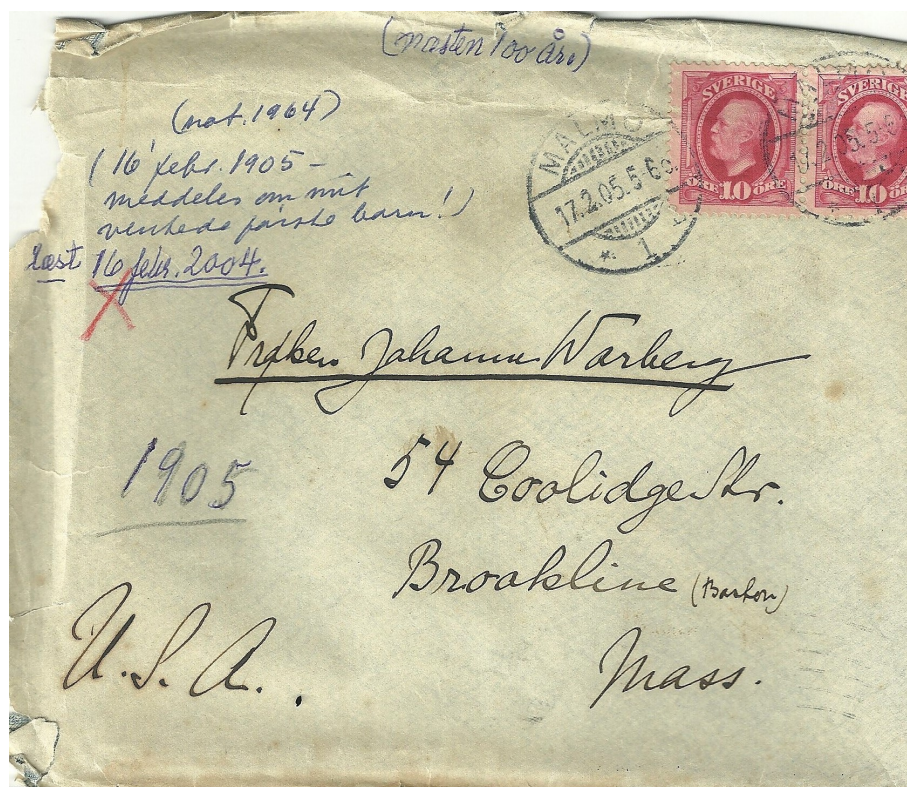 (næsten 100 år)
(not. 1964)
(16' febr. 1905 –
meddeles om mit
ventede første barn!)
Læst 16 febr. 2004.
MALMÖ
17.2.05.5-6e
1
SVERIGE
ÖRE 10 ÖRE
SVERIGE
ÖRE 10 ÖRE
Frøken Johanne Warberg
54 Coolidge Str.
1905
Brookline (Boston)
U.S.A.
Mass.